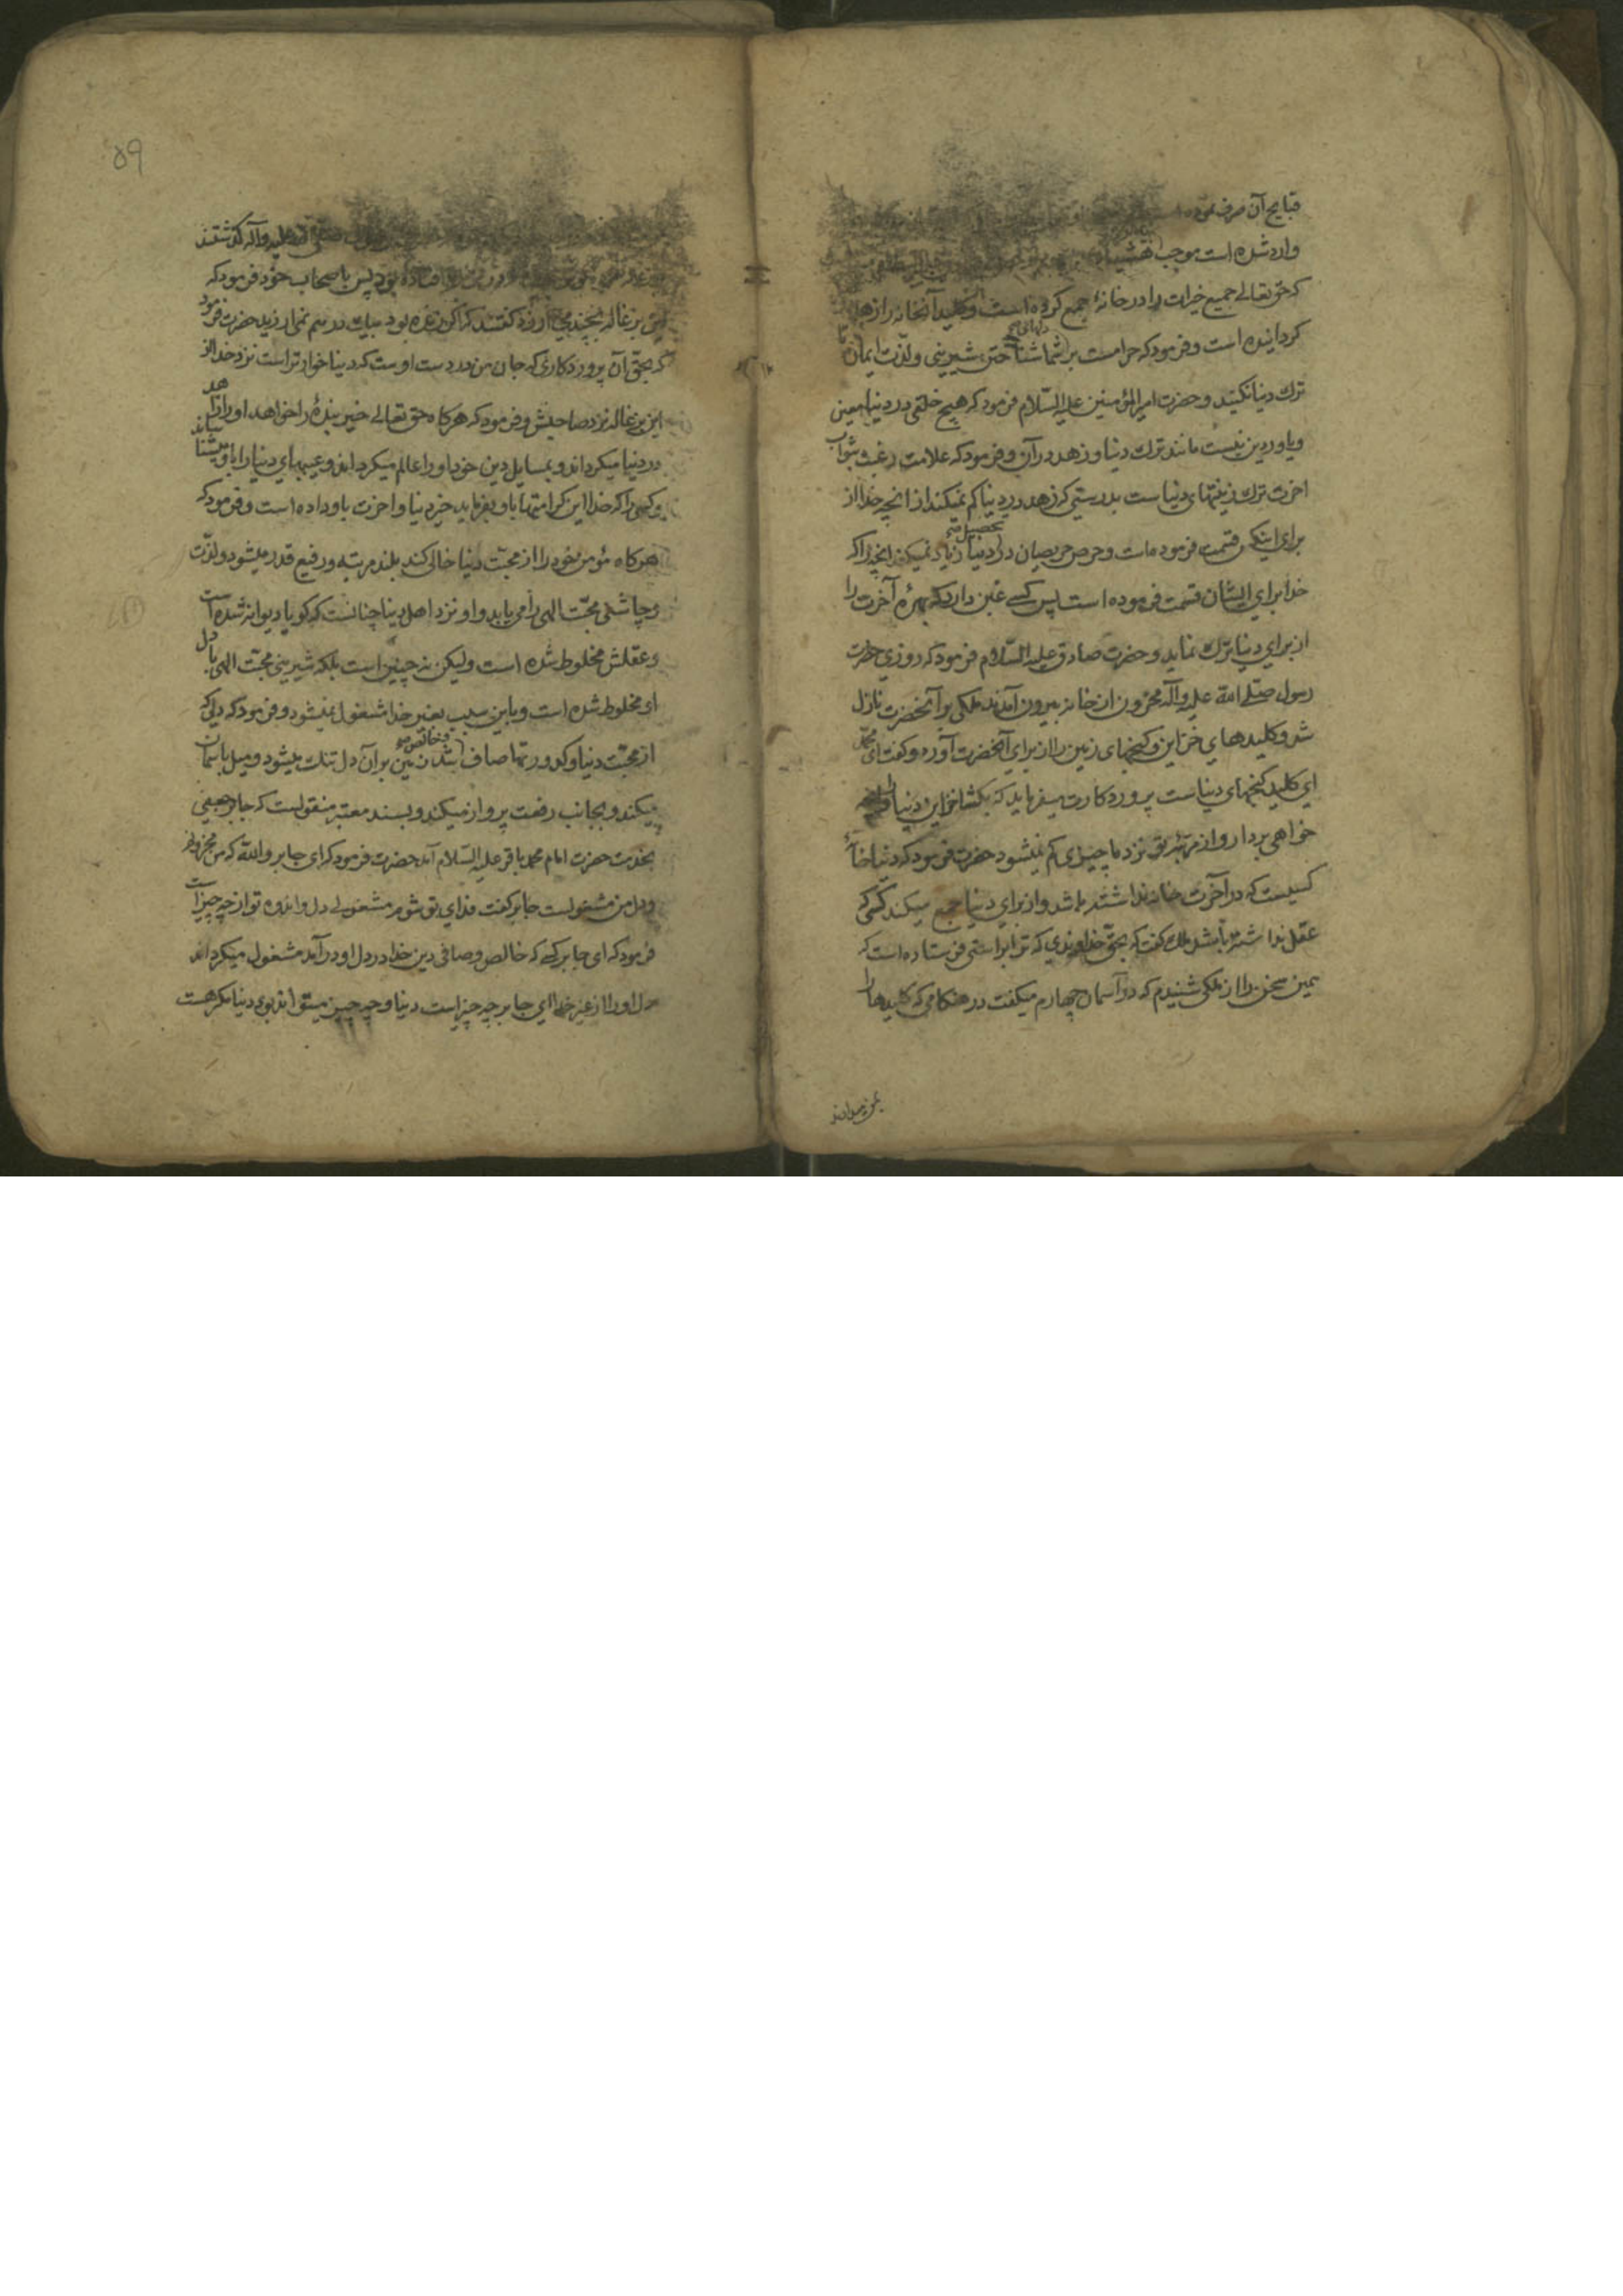 قبایح آن صرف نموده
وارد شده است موجب
که حق تعالی جمیع خیرات را در خانهٔ جمع کرده است و کلید آنخانه را زهد
کردانیده است و فرمود که حرامست بر دلهای شما شناختن شیرینی و لذّت ایمان تا
ترك دنیا نکنید و حضرت امیرالمؤمنین علیه السّلام فرمود که هیچ خلقی در دنیا معین
و یاور دین نیست مانند ترك دنیا و زهد در آن و فرمود که علامت رغبت بثواب
اخرت ترك زینتهای دنیاست بدرستی که زهد در دنیا کم نمیکند از انچه خدا از
برای اینکس قسمت فرموده است و حرص حریصان در تحصیل دنیا زیاد نمیکند انچه را که
خدا برای ایشان قسمت فرموده است پس کسی غبن دارد که بهرهٔ آخرت را
از برای دنیا ترك نماید و حضرت صادق علیه السّلام فرمود که روزی حضرت
رسول صلّی الله علیه وآله محزون از خانه بیرون آمدند ملکی بر آنحضرت نازل
شد و کلیدهای خزاین و کنجهای زمین را از برای آنحضرت آورد و کفت ای محمّد
این کلید کنجهای دنیاست پروردکارت میفرماید که بکشا خزاین دنیا را و انچه
خواهی بردار و از مرتبهٔ تو نزد ما چیزی کم نمیشود حضرت فرمود که دنیا خانهٔ
کسیست که در آخرت خانه نداشته باشد و از برای دنیا جمع میکند کسی که
عقل نداشته باشد ملك کفت که بحقّ خداوندی که ترا براستی فرستاده است که
همین سخن را از ملکی شنیدم که در آسمان چهارم میکفت در هنکامی که کلیدها را
بمن میدادند
۵۹
صلّی الله علیه وآله کذشتند
افتاده بود پس باصحاب خود فرمود که
این بزغاله بچند می ارزد کفتند که اکر زنده بود بیك درهم نمی ارزید حضرت فرمود
که بحقّ آن پروردکاری که جان من در دست اوست که دنیا خوارتر است نزد خدا از
این بزغاله نزد صاحبش و فرمود که هرکاه حق تعالی خیر بندهٔ را خواهد او را زاهد
در دنیا میکرداند و بمسایل دین خود او را عالم میکرداند و عیبهای دنیا را باو میشناساند
و کسی را که خدا این کرامتها باو بفرماید خیر دنیا و اخرت باو داده است و فرمود که
هرکاه مؤمن خود را از محبّت دنیا خالی کند بلند مرتبه و رفیع قدر میشود و لذّت
و چاشنی محبّت الهی را می یابد و او نزد اهل دنیا چنانست که کویا دیوانه شده است
و عقلش مخلوط شده است ولیکن نه چنین است بلکه شیرینی محبّت الهی با دل
او مخلوط شده است و باین سبب بغیر خدا مشغول نمیشود و فرمود که دلی که
از محبّت دنیا و کدورتها صاف و خالص شد زمین بر آن دل تنك میشود و میل باسمان
میکند و بجانب رفعت پرواز میکند و بسند معتبر منقولست که جابر جعفی
بخدمت حضرت امام محمد باقر علیه السّلام آمد حضرت فرمود که ای جابر والله که من محزونم
و دل من مشغولست جابر کفت فدای تو شوم مشغولی دل و اندوه تو از چه چیز است
فرمود که ای جابر کسی که خالص و صافی دین خدا در دل او در آمد مشغول میکرداند
دل او را از غیر خدا ای جابر چه چیز است دنیا و چه چیز میتواند بود دنیا مکر هست